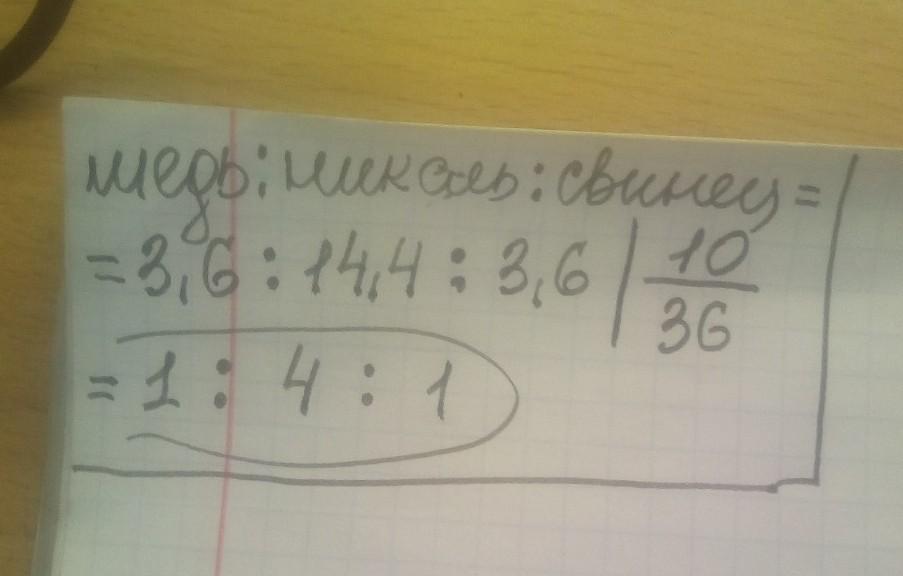 медь : никель : свинец =
= 3,6 : 14,4 : 3,6 | 10/36
= 1 : 4 : 1